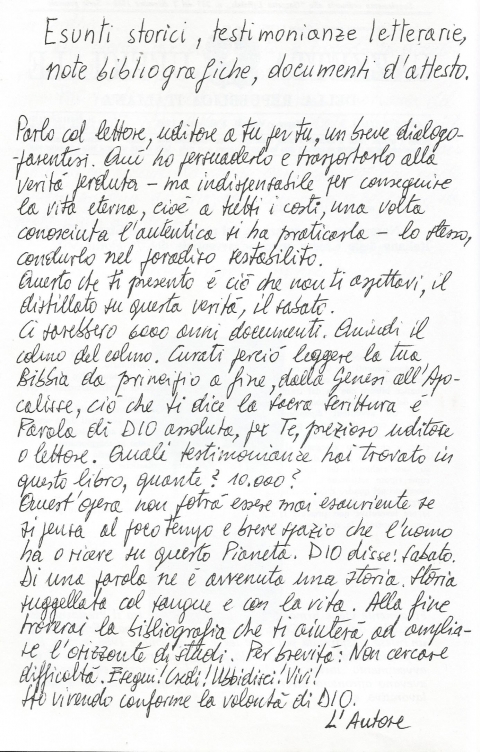 Esunti storici, testimonianze letterarie,
note bibliografiche, documenti d'attesto.
Parlo col lettore, uditore a tu per tu, un breve dialogo-
-parentesi. Qui ho persuaderlo e trasportarlo alla
verità perduta - ma indispensabile per conseguire
la vita eterna, cioè a tutti i costi, una volta
conosciuta l'autentica si ha praticarla - lo stesso,
condurlo nel paradiso restabilito.
Questo che ti presento è ciò che non ti aspettavi, il
distillato su questa verità, il sabato.
Ci sarebbero 6000 anni documenti. Quindi il
colmo del colmo. Curati perciò leggere la tua
Bibbia da principio a fine, dalla Genesi all'Apo-
calisse, ciò che ti dice la sacra Scrittura è
Parola di DIO assoluta, per Te, prezioso uditore
o lettore. Quali testimonianze hai trovato in
questo libro, quante? 10.000?
Quest'opera non potrà essere mai esauriente se
si pensa al poco tempo e breve spazio che l'uomo
ha o riceve su questo Pianeta. DIO disse: sabato.
Di una parola ne è avvenuta una storia. Storia
suggellata col sangue e con la vita. Alla fine
troverai la bibliografia che ti aiuterà ad amplia-
re l'orizzonte di studi. Per brevità: Non cercare
difficoltà. Esegui! Credi! Ubbidisci! Vivi!
Sto vivendo conforme la volontà di DIO.
L'Autore